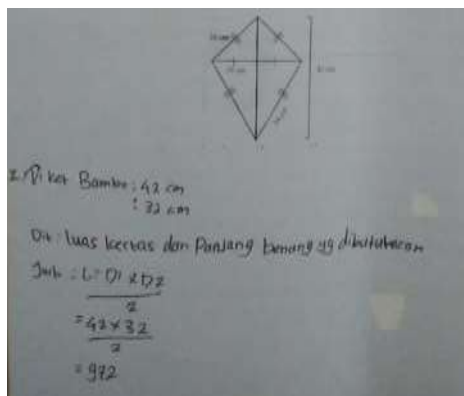 2. Diket Bambu : 42 cm
: 32 cm
Dit : luas kertas dan Panjang benang yg dibutuhkan
Jwb : L = D1 x D2
2
= 42 x 32
2
= 972